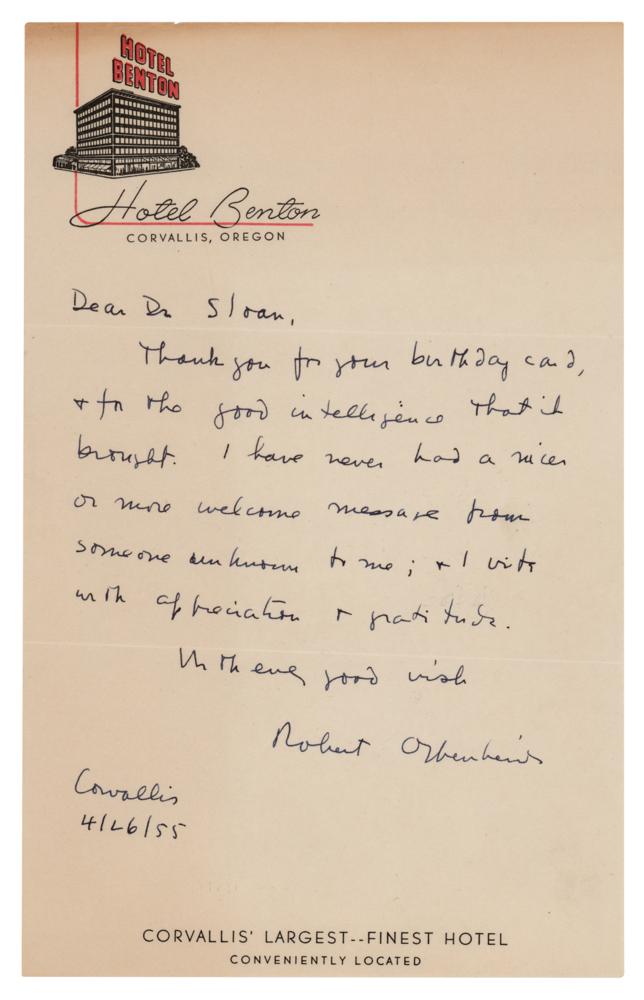 HOTEL
BENTON
Hotel Benton
CORVALLIS, OREGON
Dear Dr Sloan,
Thank you for your birthday card,
+ for the good intelligence that it
brought. I have never had a nicer
or more welcome message from
someone unknown to me; + I write
with appreciation + gratitude.
With every good wish
Robert Oppenheimer
Corvallis
4/26/55
CORVALLIS' LARGEST--FINEST HOTEL
CONVENIENTLY LOCATED